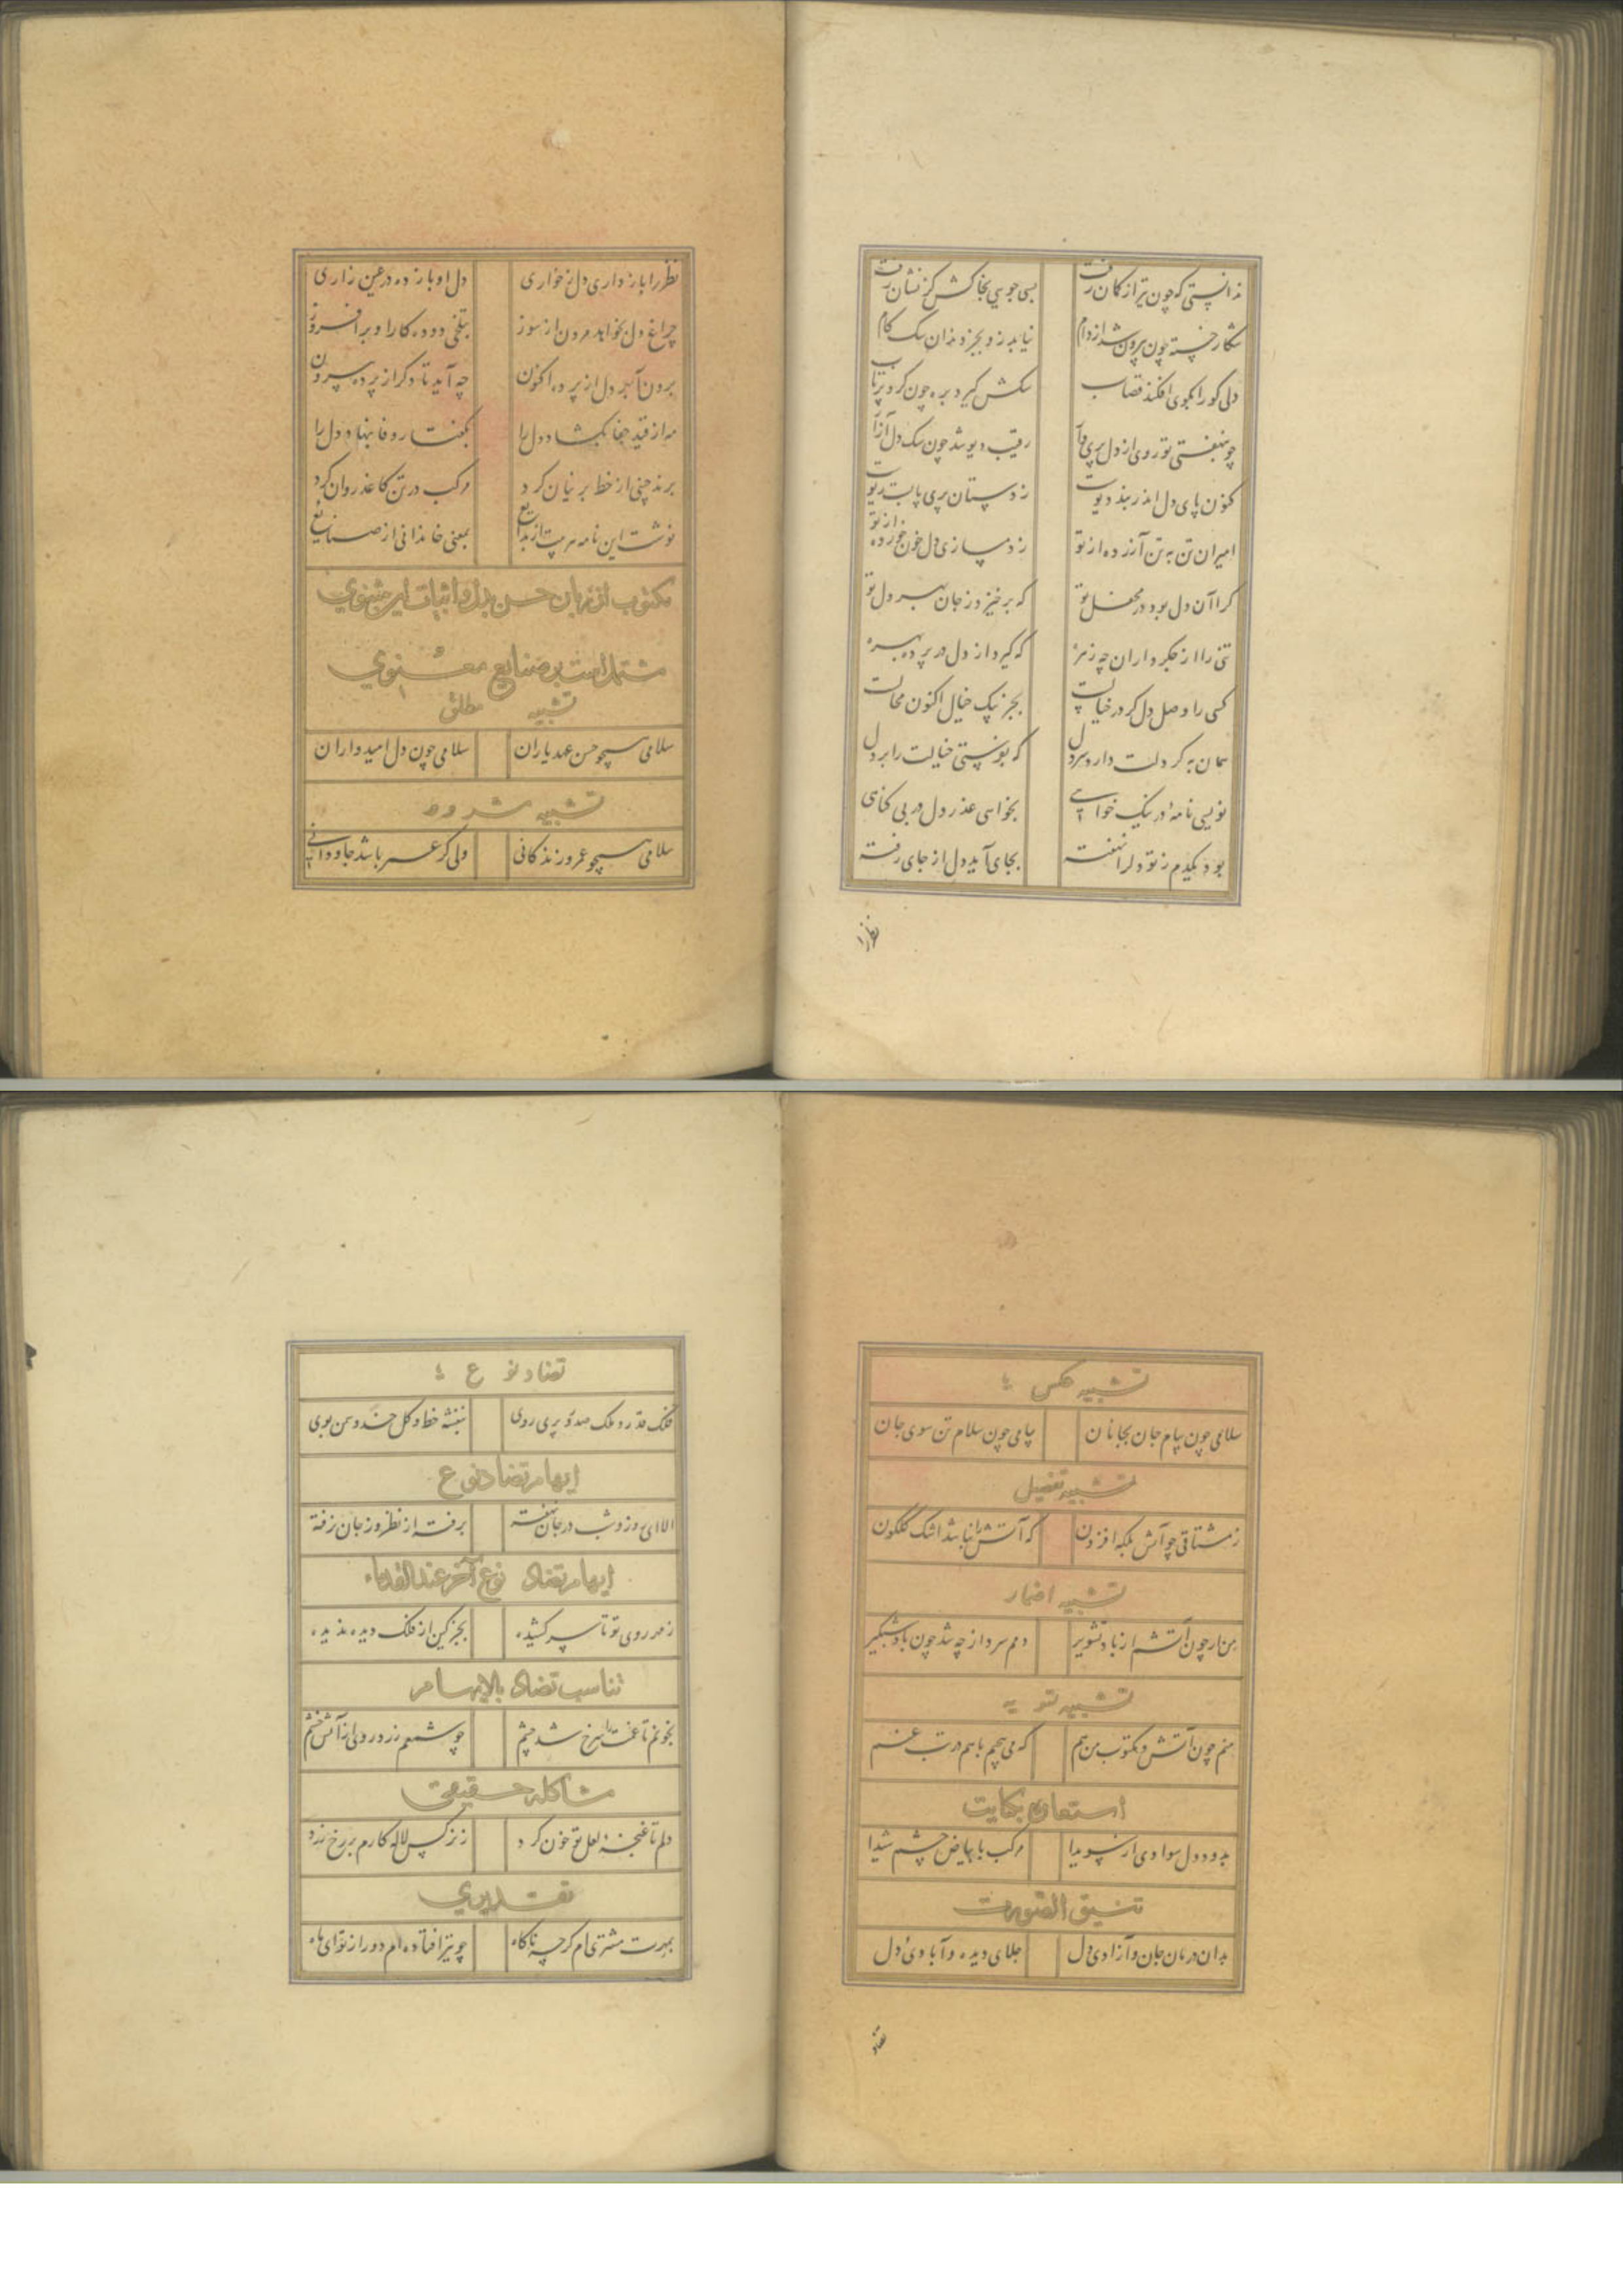 ندانستی که چون تیر از کمان رفت بسی جویی بخاکش کز نشان رفت
شکار خسته چون بیرون شد از دام نیابد زو بجز دندان سگ کام
دلی کو را بکوی افکند قصاب سگش گیرد بره چون کرد پرتاب
چو بنهفتی تو روی از دل پری وار رقیب دیو شد چون سگ دل آزار
کنون پای دل اندر بند دیوست ز دستان پری پابست ریوست
امیران تن به تن آزرده از تو ز دمسازی دل خون خورده از تو
کرا آن دل بود در محفل تو که برخیزد ز جان بهر دل تو
تنی را از جگرداران چه زهره که گیرد از دل در پرده بهره
کسی را وصل دل کر در خیالست بجز پیک خیال اکنون محالست
همان به کر دلت دارد سر دل که بفرستی خیالت را بر دل
نویسی نامه در نیک خواهی بخواهی عذر دل در بی کناهی
بود یکدم ز تو دلرا نهفته بجای آید دل از جای رفته
نظر را
نظر را باز داری دل ز خواری دل او باز ده در عین زاری
چراغ دل بخواهد مردن از سوز بتلخی دوده کارا و برافروز
برون آمد دل از پرده اکنون چه آید تا دکر از پرده بیرون
مه از قید جفا بکشاد دل را بگفتار وفا بنهاد دل را
برند چنی از خط پرنیان کرد مرکب در تن کاغذ روان کرد
نوشت این نامه مرتب از بدایع بمعنی خاندانی از صنایع
مکتوب از زبان حسن بدل و ابیات این مثنوی
مشتملست بر صنایع معنوی
تشبیه مطلق
سلامی همچو حسن عهد یاران سلامی چون دل امیدواران
تشبیه مشروط
سلامی همچو عمر و زندگانی ولی کر عمر باشد جاودانی
تشبیه عکس
سلامی چون پیام جان بجانان پیامی چون سلام تن سوی جان
تشبیه تفضیل
ز مشتاقی چو آتش بلکه افزون که آتش را نباشد اشک گلگون
تشبیه اضمار
من ار چون آتشم از باد تشویر دمم سرد از چه شد چون باد شبگیر
تشبیه تسویه
منم چون آتش و مکتوب من هم که می پیچم باهم در تب غم
استعاره بکنایت
بدود دل سوادی از سویدا مرکب با بیاض چشم شیدا
تنسیق الصفات
بدان درمان جان و آزادی دل جلای دیده و آبادی دل
تضاد
تضاد نوع
فلک قدر و ملک صدر و پری روی بنفشه خط و گل خد و سمن بوی
ایهام تضاد نوع
الا ای روز و شب در جان نهفته برفته از نظر وز جان نرفته
ایهام تضاد نوع آخر عند القدماء
ز مهر روی تو تا سر کشیده بجز کین از فلک دیده ندیده
تناسب تضاد بالایهام
بخونم تا غمت را سرخ شد چشم چو شمعم زرد روی از آتش خشم
مشاکله حقیقی
دلم تا غنچه لعل تو خون کرد ز نرگس لاله کارم بر رخ زرد
تقدیری
بمهرت مشتری ام کرچه ناکاه چو تیر افتاده ام دور از تو ای ماه